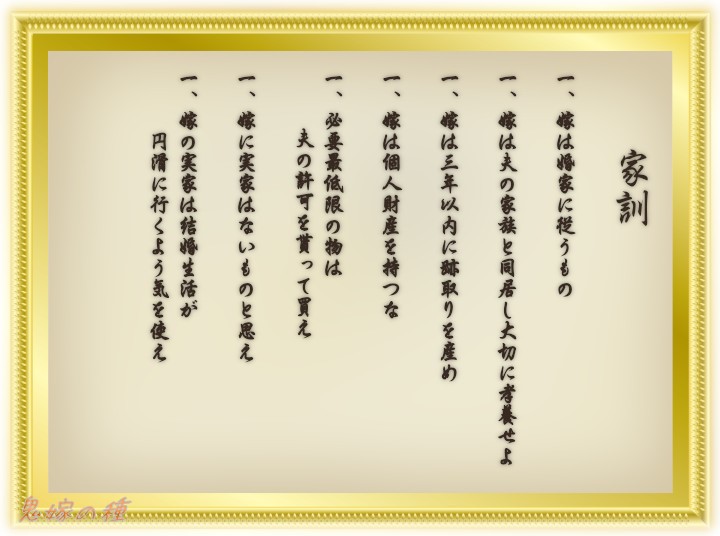 家訓
一、嫁は婚家に従うもの
一、嫁は夫の家族と同居し大切に孝養せよ
一、嫁は三年以内に跡取りを産め
一、嫁は個人財産を持つな
一、必要最低限の物は
夫の許可を貰って買え
一、嫁に実家はないものと思え
一、嫁の実家は結婚生活が
円滑に行くよう気を使え
鬼嫁の種